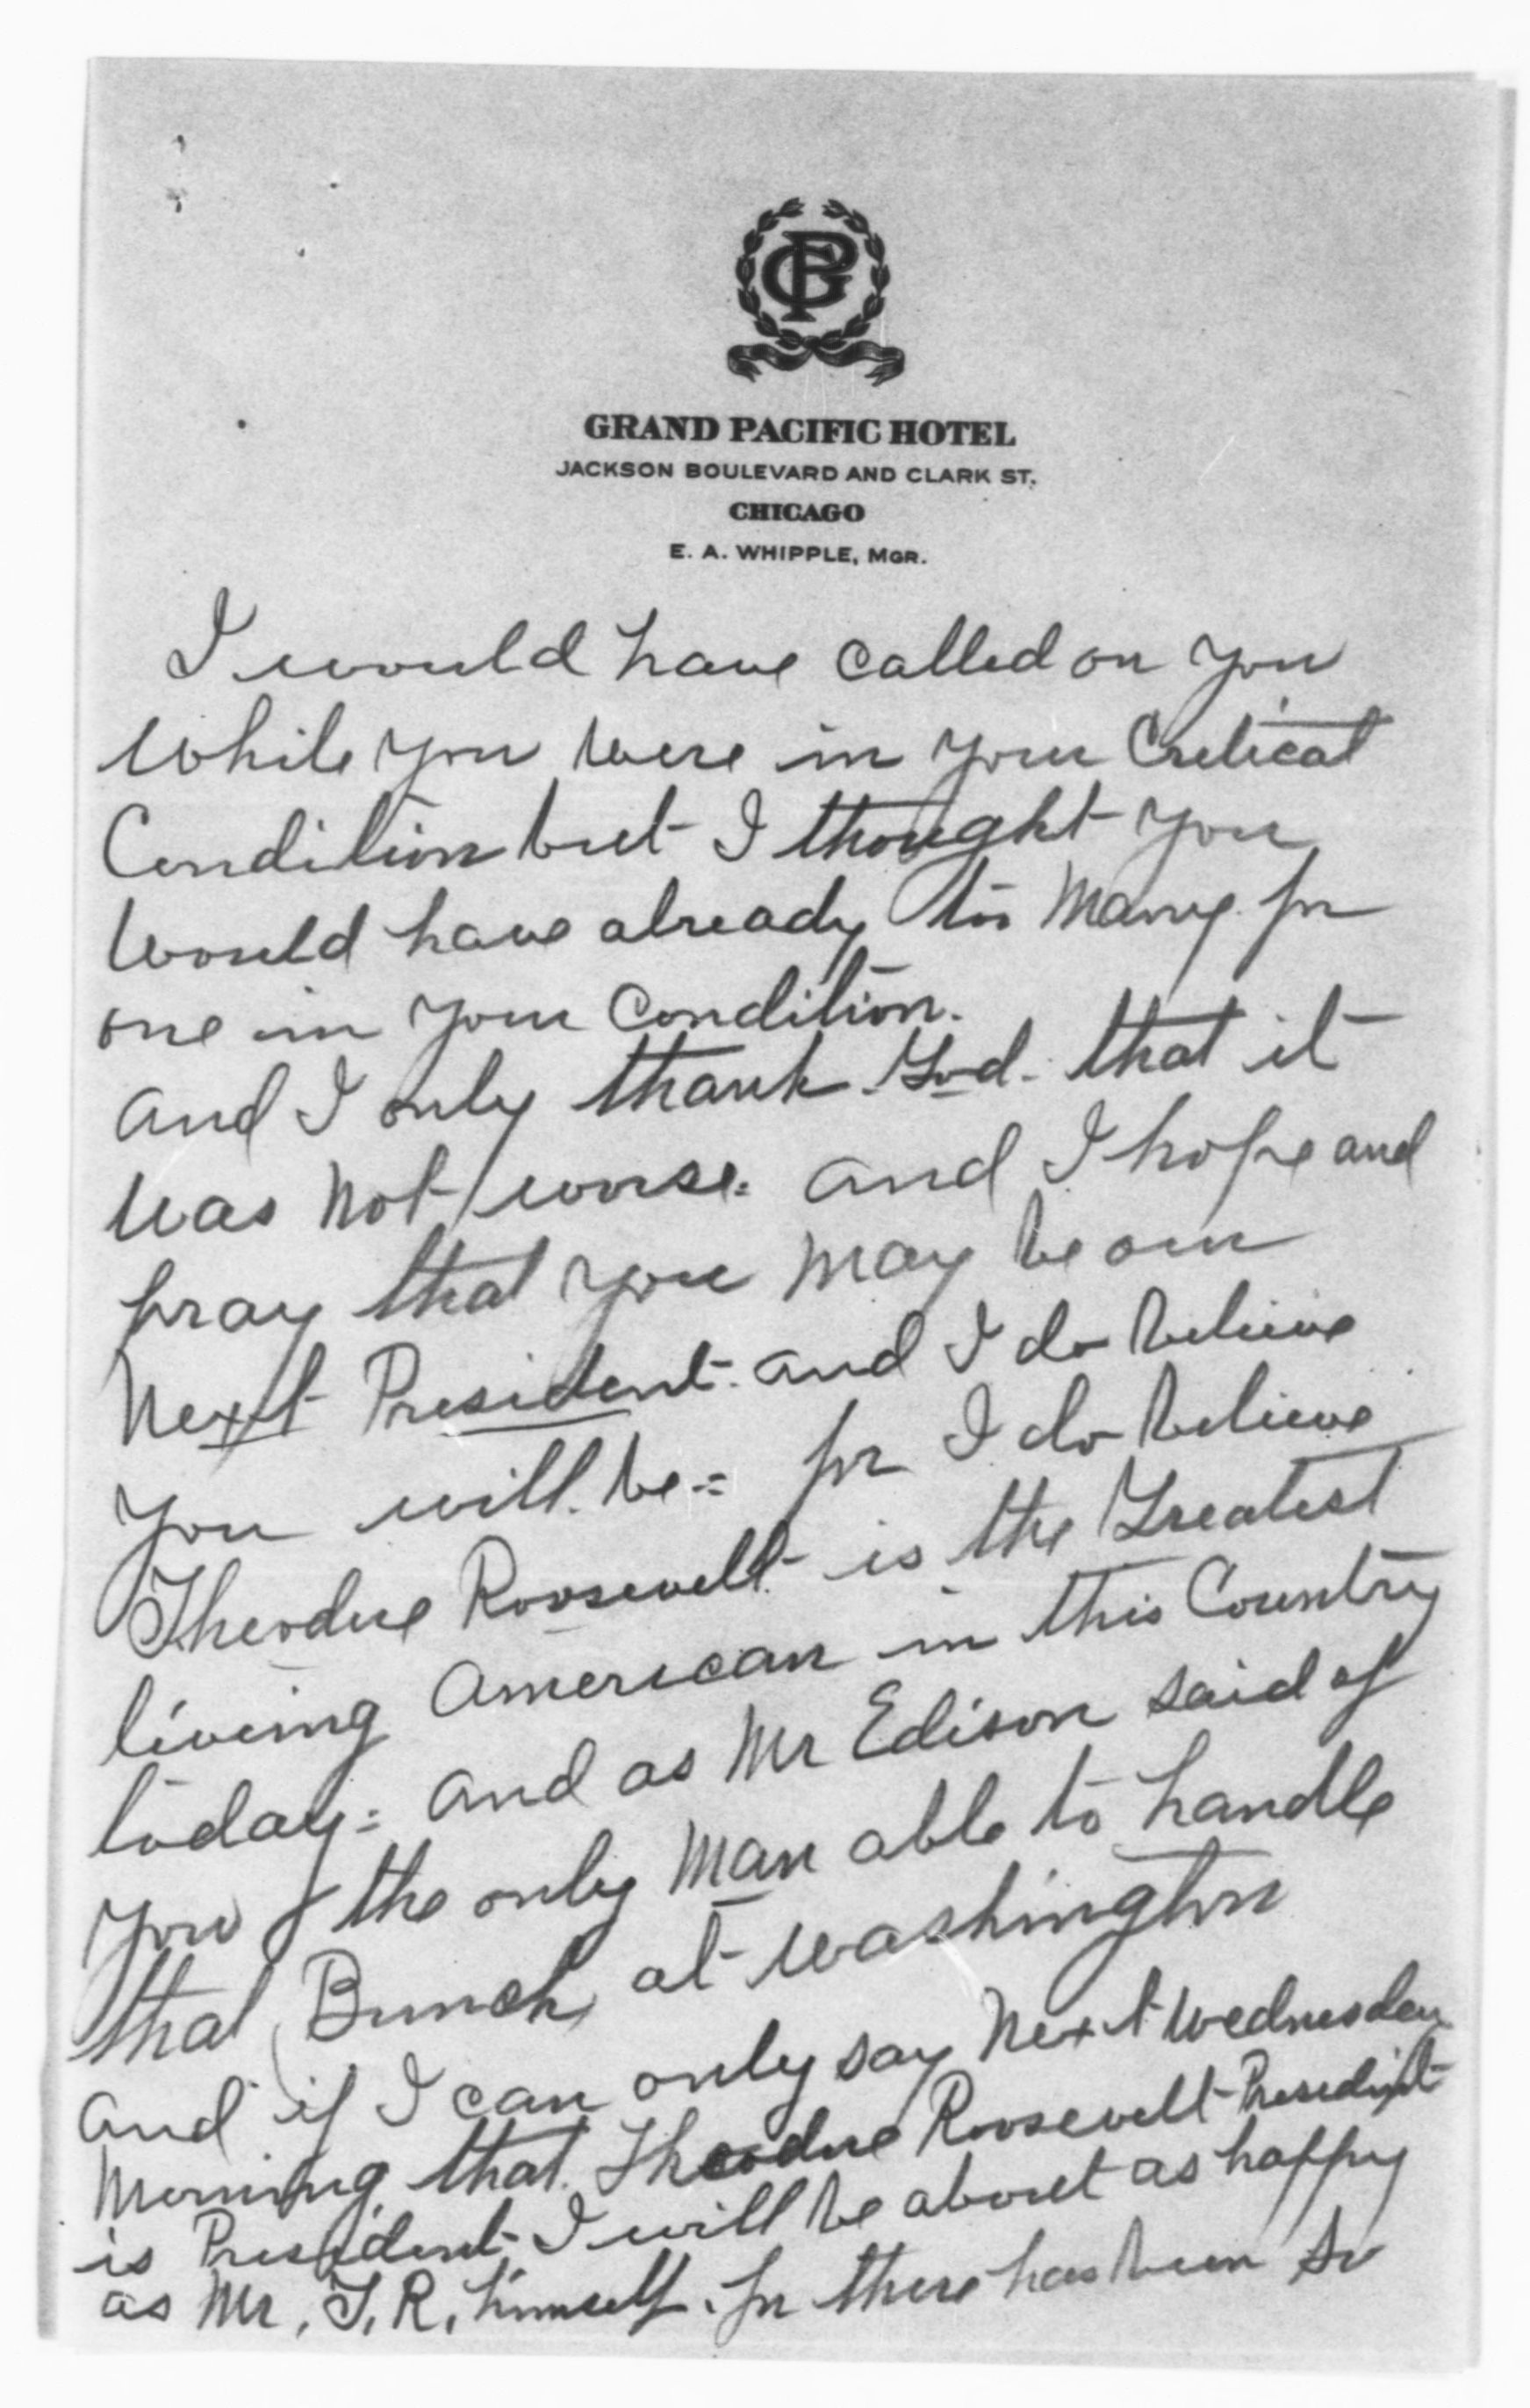 GP
GRAND PACIFIC HOTEL
JACKSON BOULEVARD AND CLARK ST.
CHICAGO
E. A. WHIPPLE, MGR.
I would have called on you
while you were in your Critical
Condition but I thought you
would have already too Many for
one in your Condition.
and I only thank God. that it
was not worse. and I hope and
pray that you may be our
Next President. and I do believe
you will. be = for I do believe
Theodore Roosevelt is the Greatest
liveing American in this Country
today = and as Mr Edison said of
you the only Man able to handle
that Bunch at Washington
and if I can only say Next Wednesday
Morning that. Theodore Roosevelt President
is President I will be about as happy
as Mr. T. R. himself. for there has been so